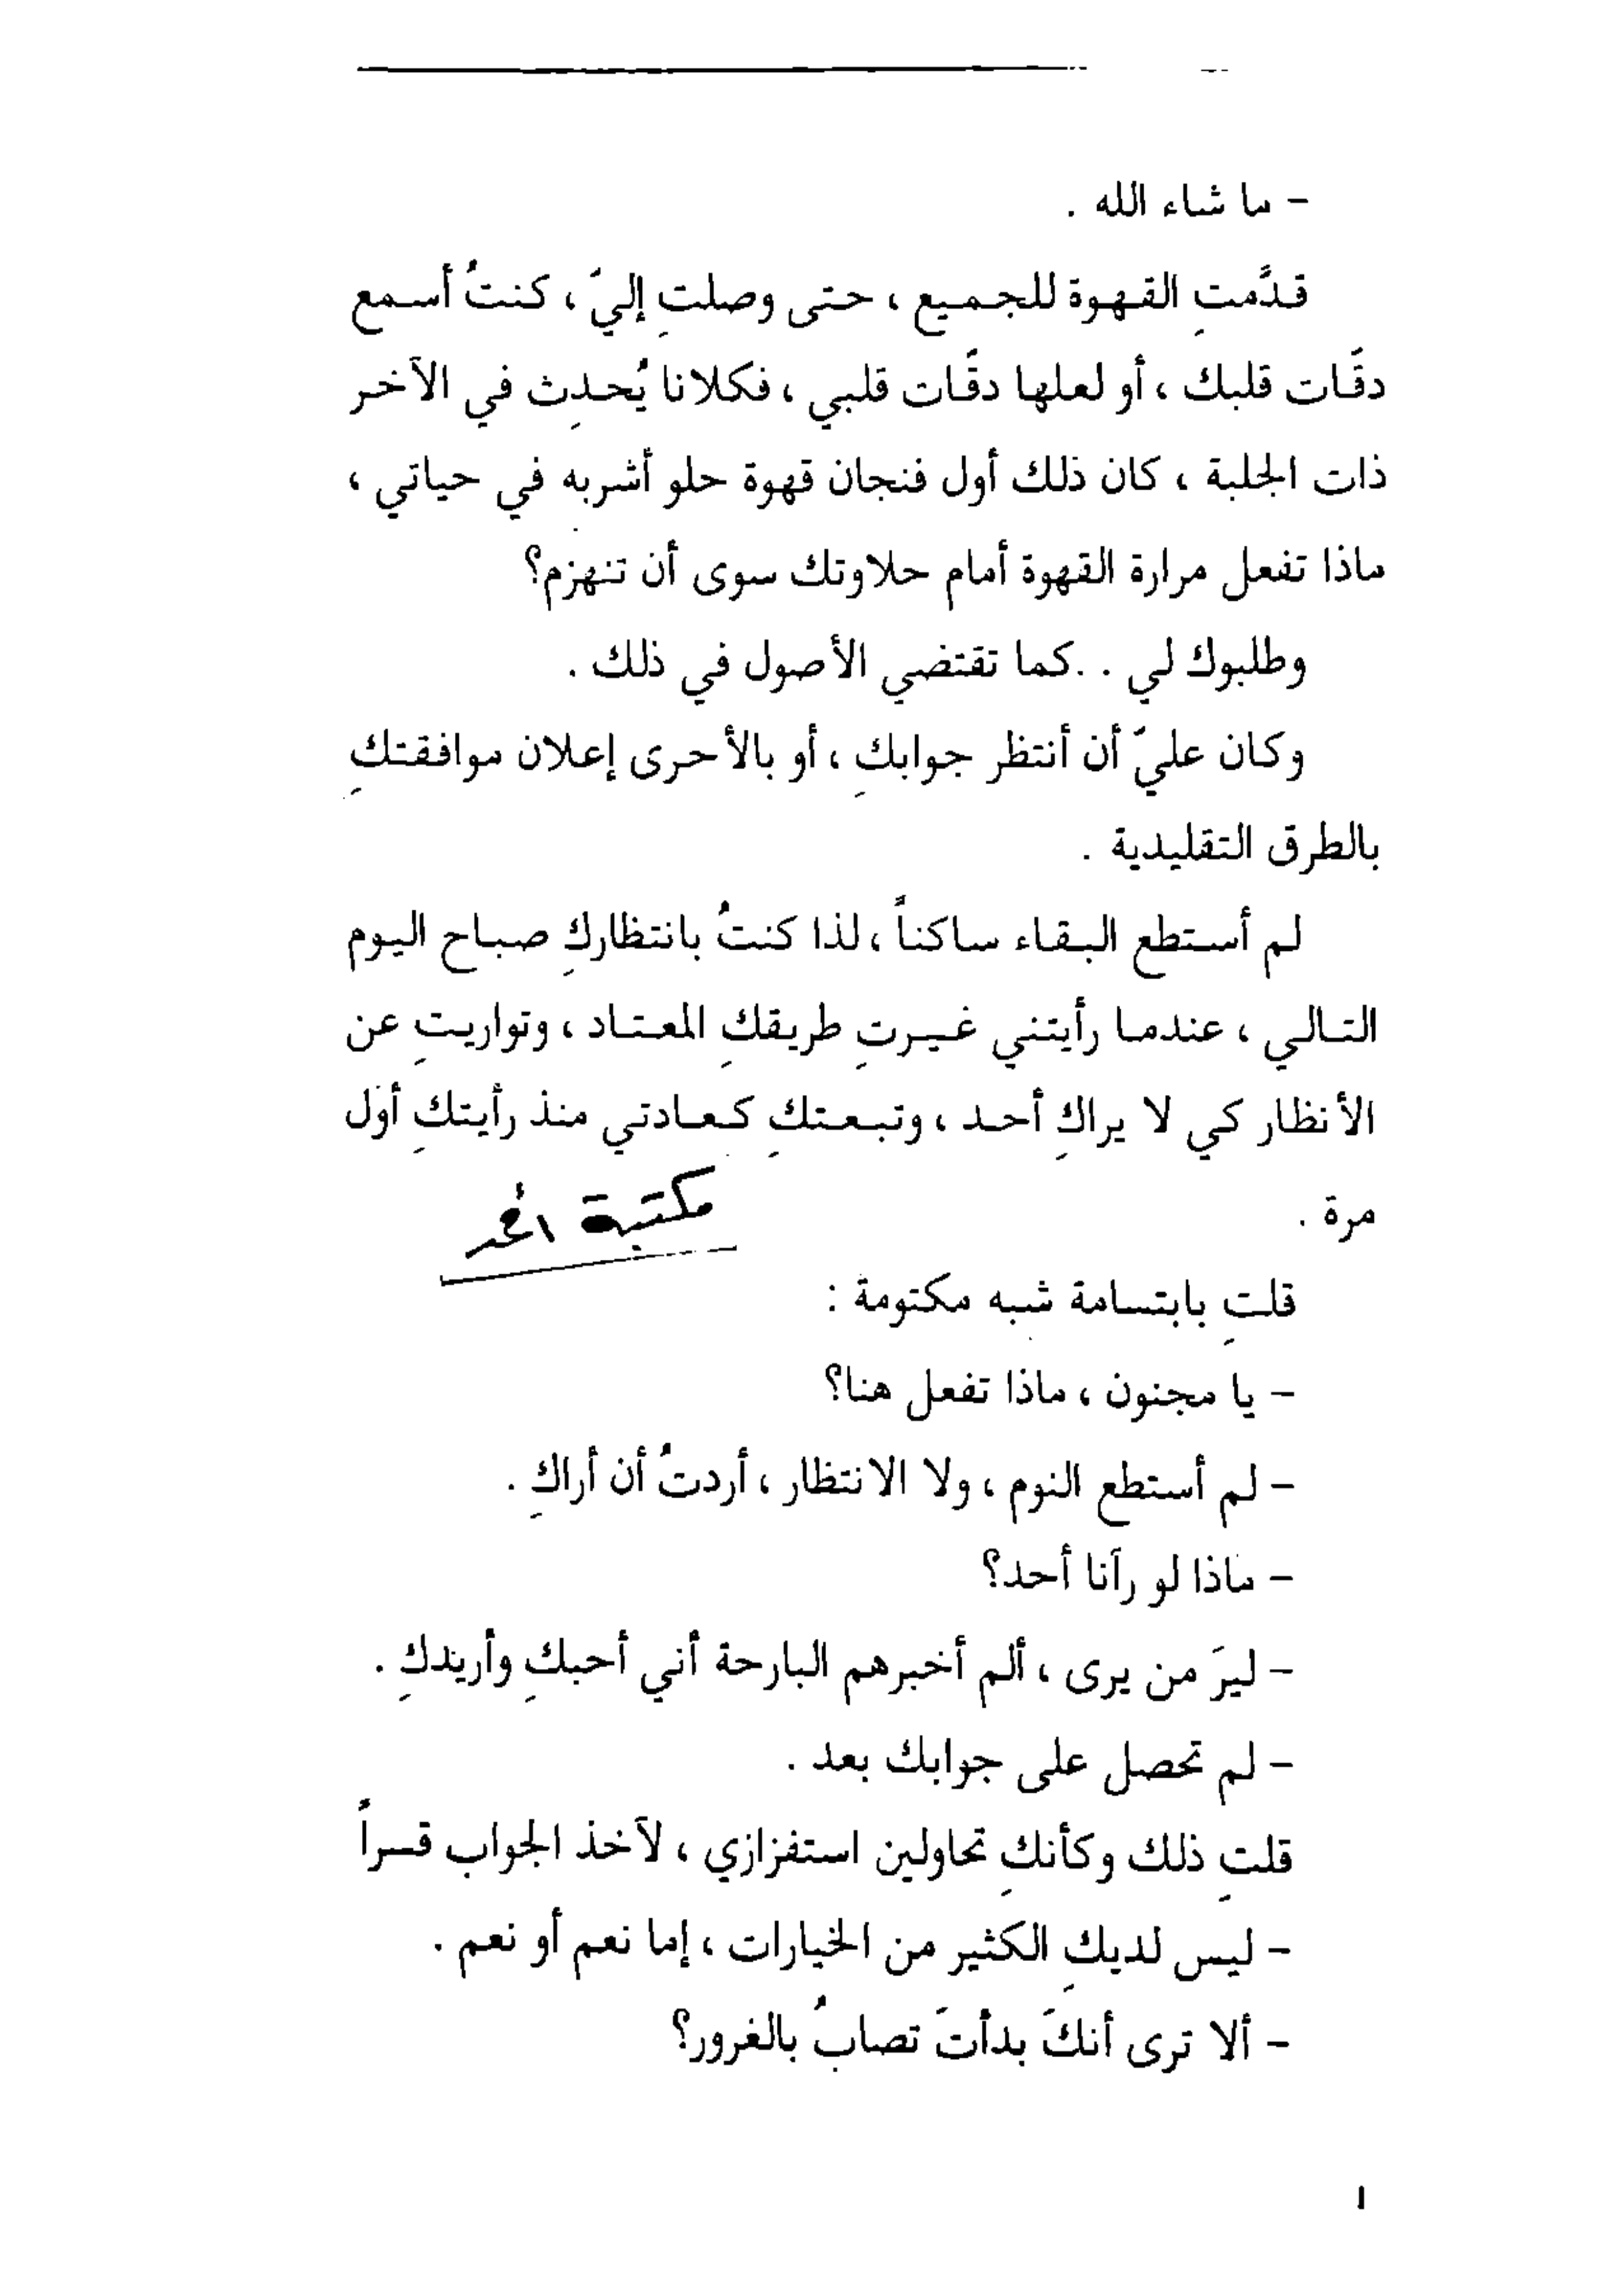 - ما شاء الله .
قدَّمتِ القهوة للجميع ، حتى وصلتِ إليّ ، كنتُ أسمع
دقّات قلبك ، أو لعلها دقّات قلبي ، فكلانا يُحدِث في الآخر
ذات الجلبة ، كان ذلك أول فنجان قهوة حلو أشربه في حياتي ،
ماذا تفعل مرارة القهوة أمام حلاوتك سوى أن تنهزم؟
وطلبوك لي . . .كما تقتضي الأصول في ذلك .
وكان عليّ أن أنتظر جوابكِ ، أو بالأحرى إعلان موافقتكِ
بالطرق التقليدية .
لم أستطع البقاء ساكناً ، لذا كنتُ بانتظاركِ صباح اليوم
التالي ، عندما رأيتني غيرتِ طريقكِ المعتاد ، وتواريتِ عن
الأنظار كي لا يراكِ أحد ، وتبعتكِ كعادتي منذ رأيتكِ أول
مرة .
مكتبة
قلتِ بابتسامة شبه مكتومة :
- يا مجنون ، ماذا تفعل هنا؟
- لم أستطع النوم ، ولا الانتظار ، أردتُ أن أراكِ .
- ماذا لو رآنا أحد؟
- ليرَ من يرى ، ألم أخبرهم البارحة أني أحبكِ وأريدكِ .
- لم تحصل على جوابك بعد .
قلتِ ذلك وكأنكِ تحاولين استفزازي ، لآخذ الجواب قسراً
- ليس لديكِ الكثير من الخيارات ، إما نعم أو نعم .
- ألا ترى أنكَ بدأتَ تصابُ بالغرور؟
١